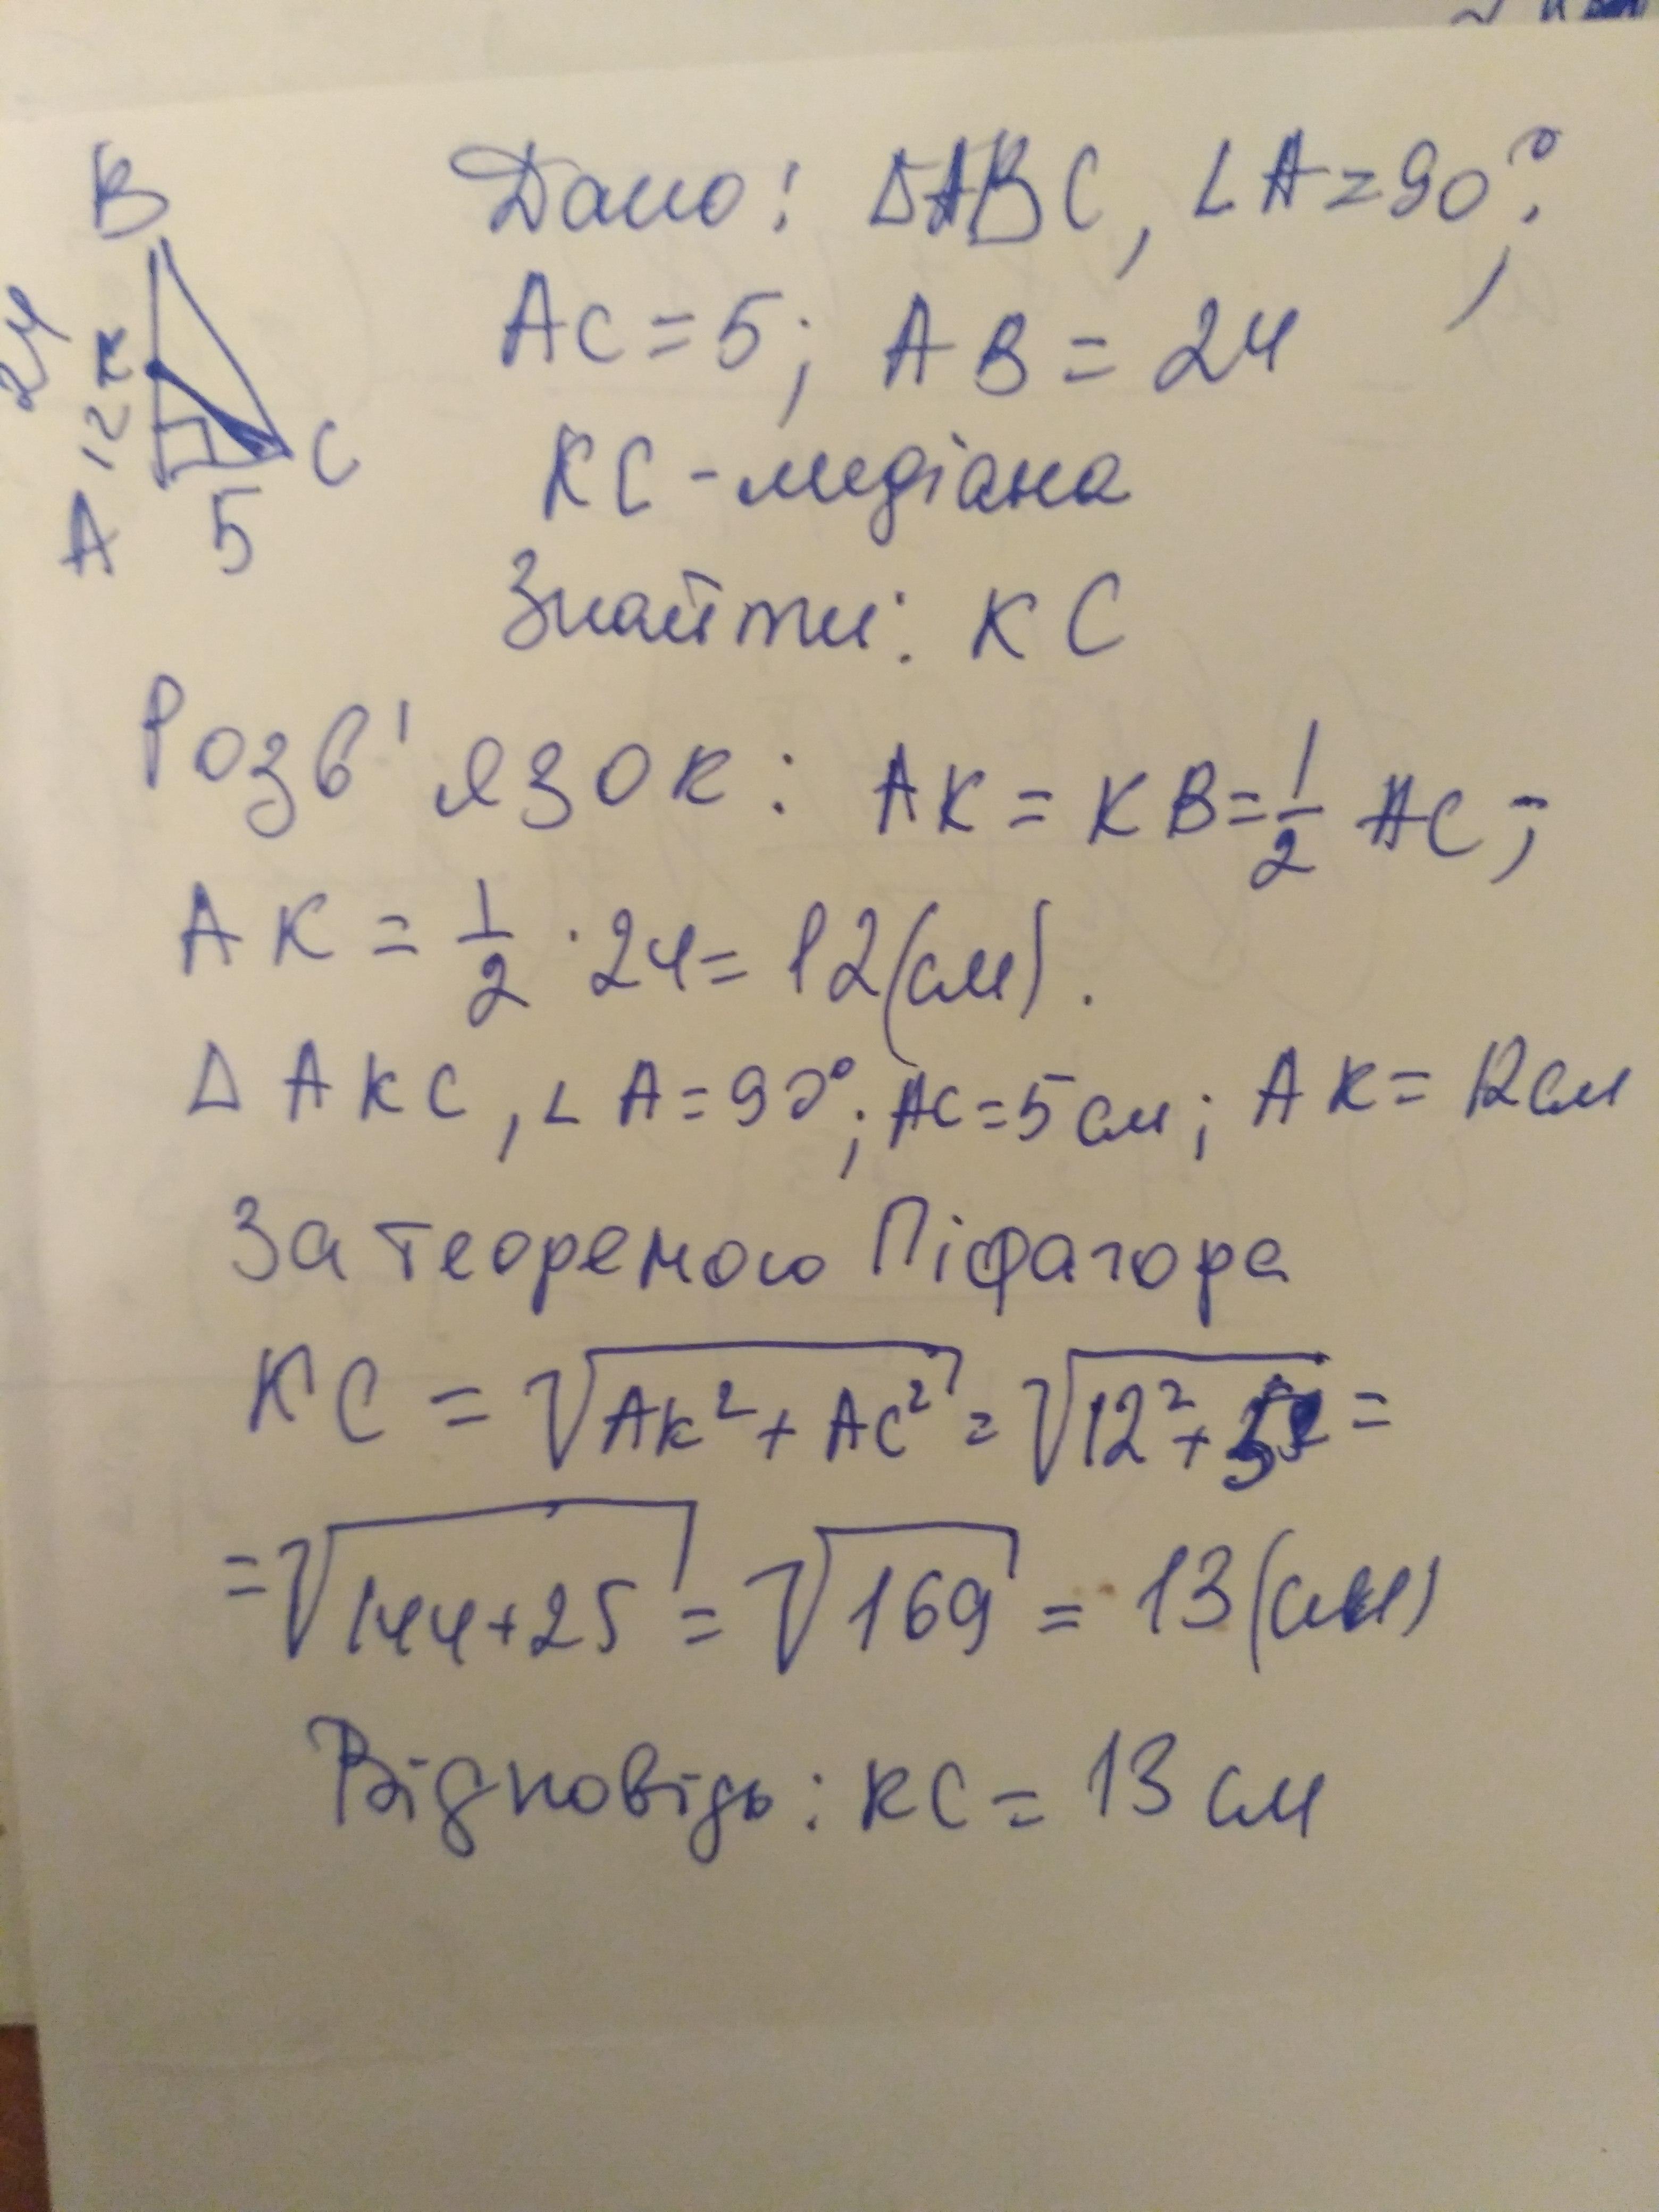 B
24
K
12
A
5
C
Дано: ΔABC, ∠A=90°;
AC=5; AB=24
KC-медіана
Знайти: KC
Розв'язок: AK=KB=1/2 AC;
AK=1/2·24=12(см).
ΔAKC, ∠A=90°; AC=5см; AK=12см
За теоремою Піфагора
KC=√AK²+AC²=√12²+5²=
=√144+25=√169=13(см)
Відповідь: KC=13 см